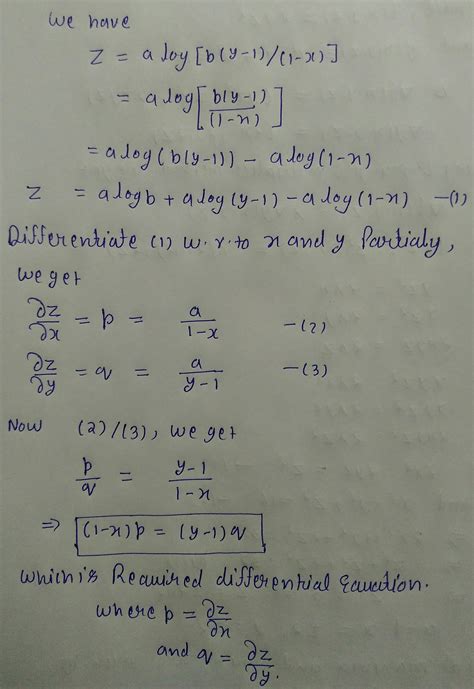 We have
z = a log [b(y-1)/(1-x)]
= a log [b(y-1)/(1-x)]
= a log (b(y-1)) - a log (1-x)
z = a log b + a log (y-1) - a log (1-x) —(1)
Differentiate (1) w.r.to x and y Partialy,
we get
∂z/∂x = p = a/(1-x) —(2)
∂z/∂y = q = a/(y-1) —(3)
Now (2)/(3), we get
p/q = (y-1)/(1-x)
⇒ (1-x)p = (y-1)q
which is Required differential Equation.
where p = ∂z/∂x
and q = ∂z/∂y.